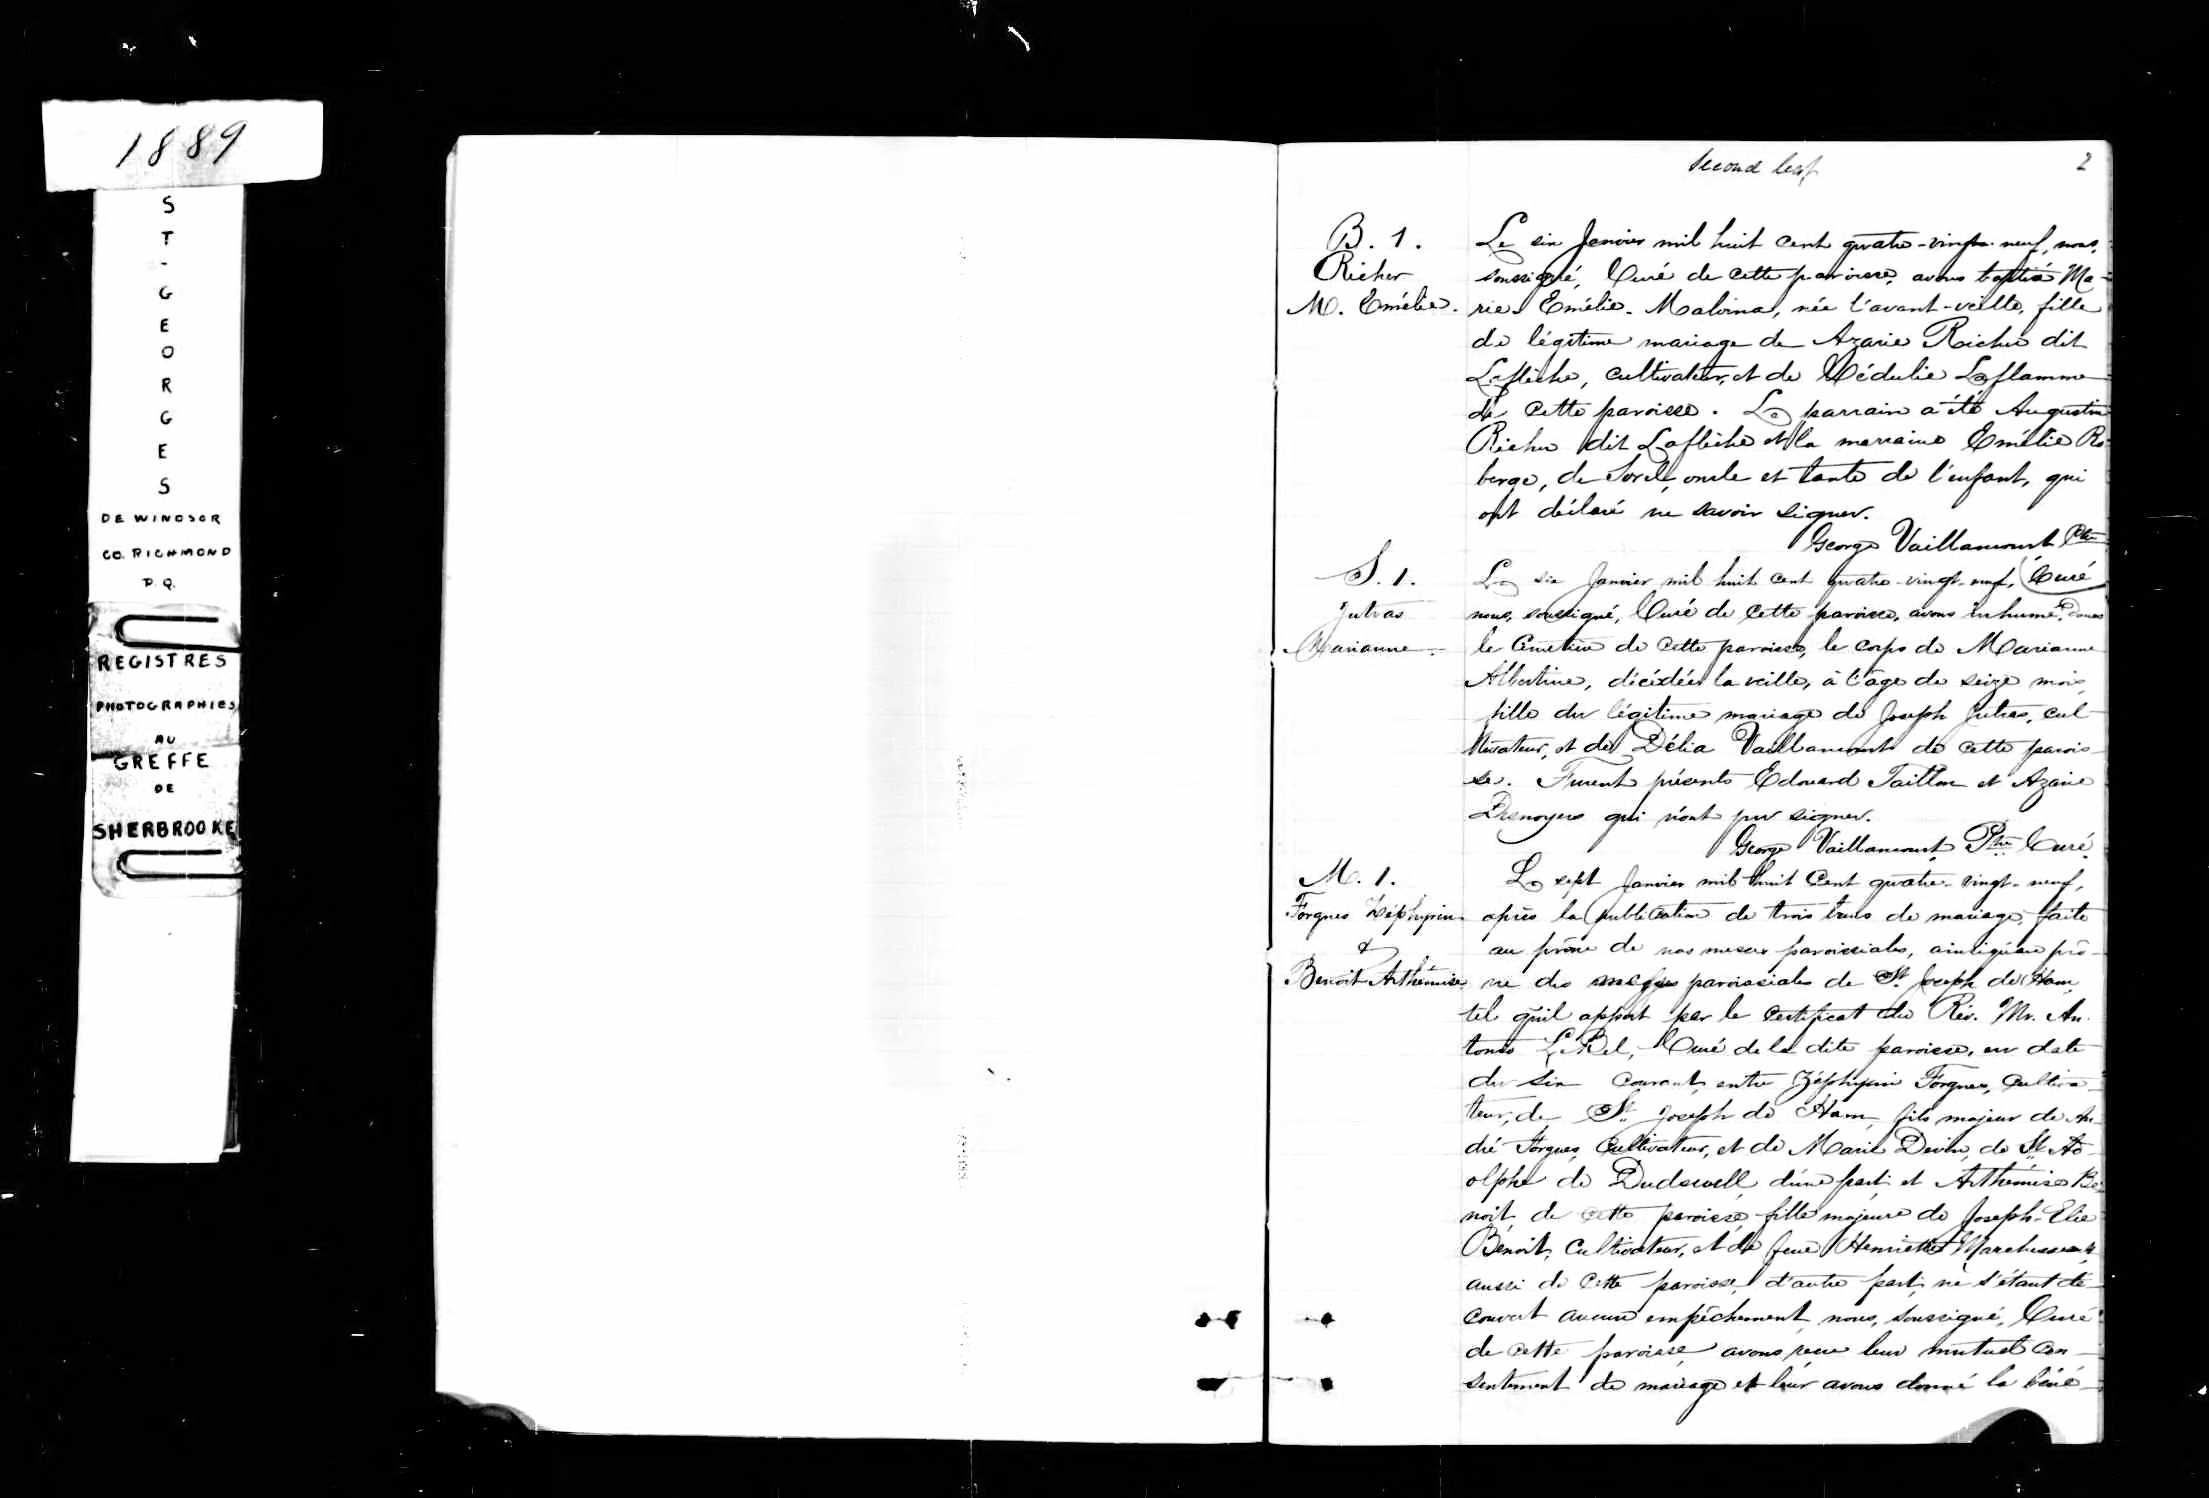 1889
S
T
-
G
E
O
R
G
E
S
DE WINDSOR
CO. RICHMOND
P.Q.
REGISTRES
PHOTOGRAPHIES
AU
GREFFE
DE
SHERBROOKE
Second leaf
2
B. 1.
Richer
M. Emélie.
Le six Janvier mil huit cent quatre-vingt-neuf, nous,
soussigné, Curé de cette paroisse, avons baptisé Ma-
rie-Emélie-Malvina, née l'avant-veille, fille
de légitime mariage de Azarie Richer dit
Laflèche, cultivateur, et de Médulie Laflamme
de cette paroisse. Le parrain a été Augustin
Richer dit Laflèche et la marraine Emélie Ro-
berge, de Sorel, oncle et tante de l'enfant, qui
ont déclaré ne savoir signer.
George Vaillancourt Ptre
Curé
S. 1.
Jutras
Marianne.
Le six Janvier mil huit cent quatre-vingt-neuf,
nous, soussigné, Curé de cette paroisse, avons inhumé, dans
le Cimetière de cette paroisse, le corps de Marianne
Albertine, décédée la veille, à l'âge de seize mois,
fille du légitime mariage de Joseph Jutras, cul-
tivateur, et de Délia Vaillancourt de cette parois-
se. Furent présents Edouard Taillon et Azarie
Desnoyers qui n'ont pu signer.
George Vaillancourt Ptre Curé.
M. 1.
Forgues Zéphyrin
&
Benoit Arthémise
Le sept Janvier mil huit Cent quatre-vingt-neuf,
après la publication de trois bans de mariage, faite
au prône de nos messes paroissiales, ainsi qu'au prô-
ne des messes paroissiales de St. Joseph de Ham,
tel qu'il appert par le certificat du Rév. Mr. An-
tonio LeBel, Curé de la dite paroisse, en date
du six courant, entre Zéphyrin Forgues, cultiva-
teur, de St. Joseph de Ham, fils majeur de An-
dré Forgues, Cultivateur, et de Marie Devin, de St. Ad-
olphe de Dudswell, d'une part; et Arthémise Be-
noit, de cette paroisse, fille majeure de Joseph-Elie
Benoit, Cultivateur, et de feue Henriette Marchesseault,
aussi de cette paroisse, d'autre part; ne s'étant dé-
couvert aucun empêchement, nous, soussigné, Curé
de cette paroisse, avons reçu leur mutuel con-
sentement de mariage et leur avons donné la béné-